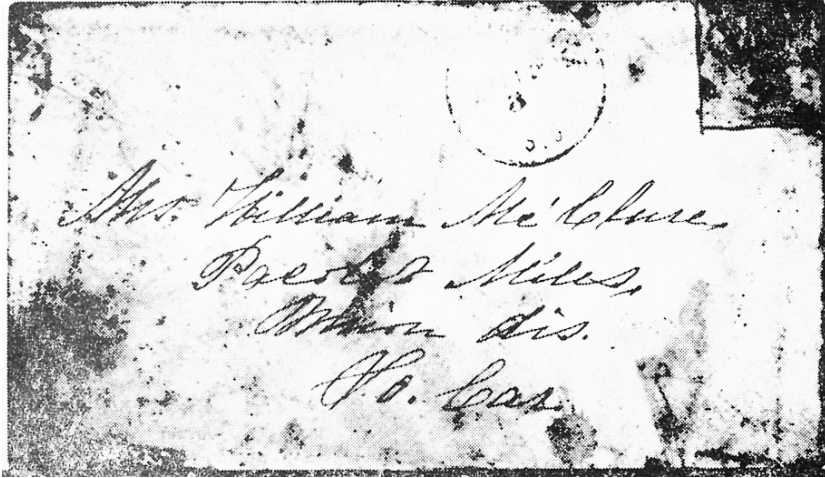 Mrs. William McClure.
Pacolet Mills,
Union dis.
So. Car.